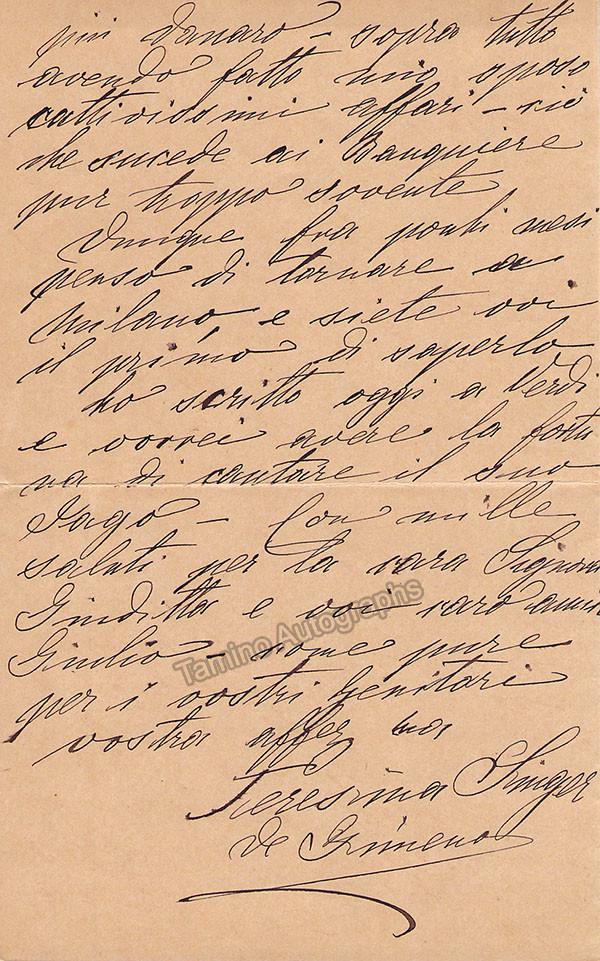 più danaro – sopra tutto
avendo fatto mio sposo
cattivissimi affari – ciò
che sucede ai Banquiere
pur troppo sovente
Dunque fra pochi mesi
penso di tornare a
Milano e siete voi
il primo di saperlo
ho scritto oggi a Verdi
e vorrei avere la fortu
na di cantare il suo
Jago – Con mille
saluti per la cara Signora
Giuditta e voi caro amico
Giulio – come pure
per i vostri Genitori
vostra affez ma
Teresina Singer
de Gimeno
Tamino Autographs